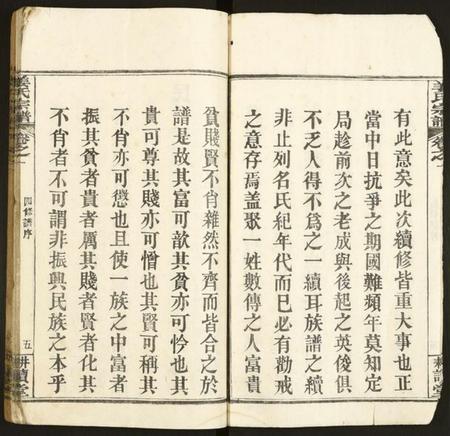 姜氏宗譜
卷之一
耕讀堂
有此意矣此次續修皆重大事也正
當中日抗爭之期國難頻年莫知定
局趁前次之老成與後起之英俊俱
不乏人得不為之一續耳族譜之續
非止列名氏紀年代而已必有勸戒
之意存焉蓋聚一姓數傳之人富貴
貧賤賢不肖雜然不齊而皆合之於
譜是故其富可歆其貧亦可怜也其
貴可尊其賤亦可憎也其賢可稱其
不肖亦可懲也且使一族之中富者
振其貧者貴者厲其賤者賢者化其
不肖者不可謂非振興民族之本乎
姜氏宗譜
卷之一
四修譜序
五
耕讀堂